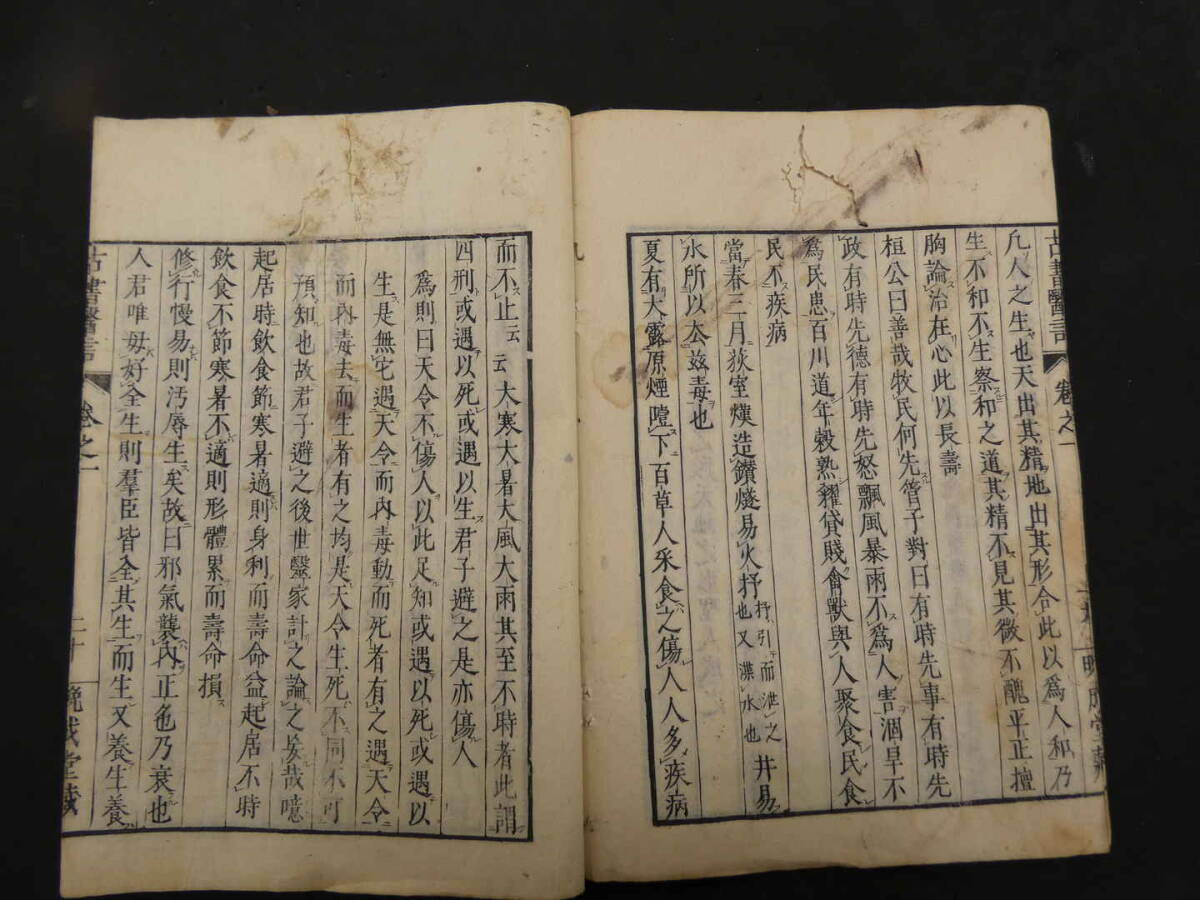 古書醫言 卷之一
凡人之生也天出其精地出其形合此以爲人和乃
生不和不生察和之道其精不見其徵不醜平正擅
胸論治在心此以長壽
桓公曰善哉牧民何先管子對曰有時先事有時先
政有時先德有時先怒飄風暴雨不爲人害涸旱不
爲民患百川道年穀熟糴貸賤禽獸與人聚食民食
民不疾病
當春三月萩室熯造鑽燧易火抒井易
抒引而泄之
也又渫水也
水所以去茲毒也
夏有大露原煙噎下百草人采食之傷人人多疾病
而不止云云大寒大暑大風大雨其至不時者此謂
四刑或遇以死或遇以生君子避之是亦傷人
爲則曰天令不傷人以此足知或遇以死或遇以
生是無它遇天令而內毒動而死者有之遇天令
而內毒去而生者有之均是天令生死不同不可
預知也故君子避之後世毉家計之論之妄哉噫
起居時飲食節寒暑適則身利而壽命益起居不時
飲食不節寒暑不適則形體累而壽命損
修行慢易則汚辱生矣故曰邪氣襲內正色乃衰也
人君唯毋好全生則羣臣皆全其生而生又養生養
古書醫言 卷之一 二十 晩成堂藏